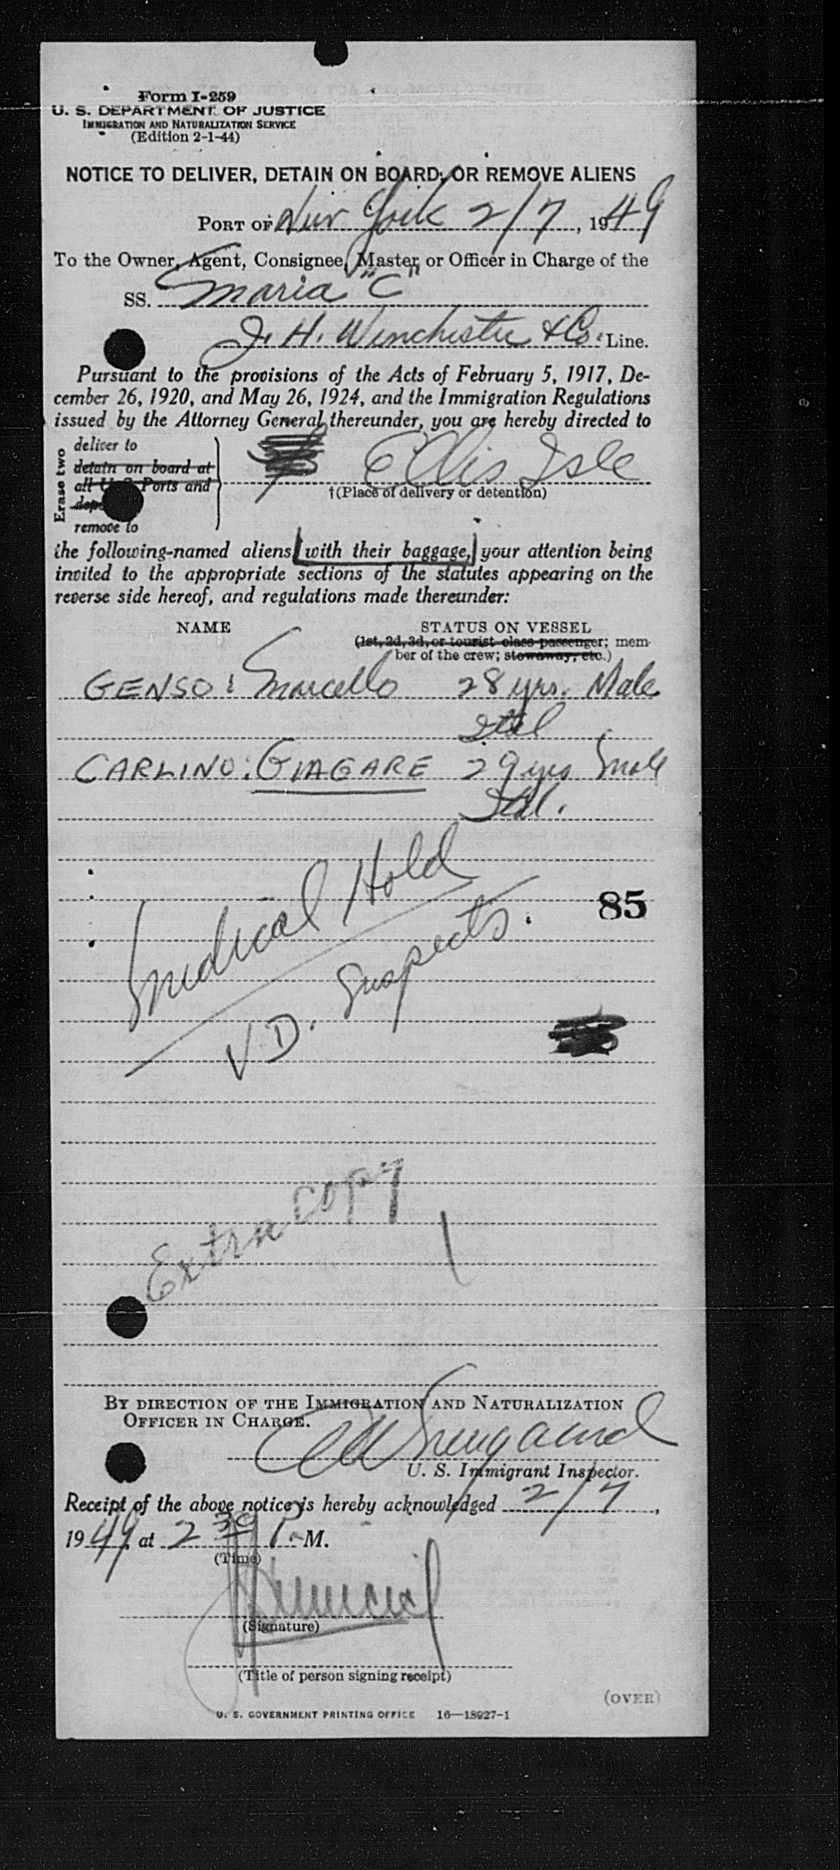 Form I-259
U. S. DEPARTMENT OF JUSTICE
IMMIGRATION AND NATURALIZATION SERVICE
(Edition 2-1-44)
NOTICE TO DELIVER, DETAIN ON BOARD, OR REMOVE ALIENS
PORT OF New York 2/7, 1949
To the Owner, Agent, Consignee, Master, or Officer in Charge of the
SS. Maria "C"
J. H. Winchester & Co. Line.
Pursuant to the provisions of the Acts of February 5, 1917, De-
cember 26, 1920, and May 26, 1924, and the Immigration Regulations
issued by the Attorney General thereunder, you are hereby directed to
Erase two
deliver to
detain on board at
all U. S. Ports and
remove to
Ellis Isle
†(Place of delivery or detention)
the following-named aliens with their baggage, your attention being
invited to the appropriate sections of the statutes appearing on the
reverse side hereof, and regulations made thereunder:
NAME STATUS ON VESSEL
(1st, 2d, 3d, or tourist class passenger; mem-
ber of the crew; stowaway, etc.)
GENSO: Marcello 28 yrs. Male
Ital
CARLINO: GIAGARE 29 yrs Male
Ital.
Medical Hold
85
V.D. Suspects.
Extra copy
BY DIRECTION OF THE IMMIGRATION AND NATURALIZATION
OFFICER IN CHARGE.
U. S. Immigrant Inspector.
Receipt of the above notice is hereby acknowledged 2/7,
1949 at 2 30 P. M.
(Time)
(Signature)
(Title of person signing receipt)
(OVER)
U. S. GOVERNMENT PRINTING OFFICE 16—18927-1